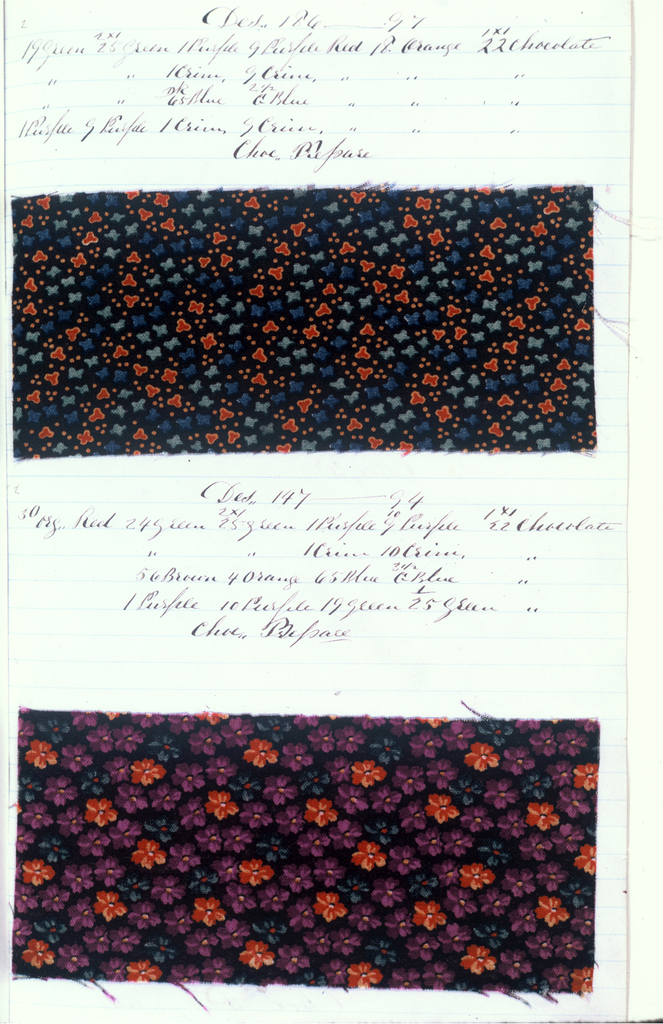 2
Des.. 186 — 97
19 Green 2x1 25 Green 1 Purple 9 Purple Red 18 Orange 1x1 22 Chocolate
" " 1 Crim, 9 Crim, " " "
" " Dk 65 Blue 2 1/2 C Blue " " "
1 Purple 9 Purple 1 Crim, 9 Crim, " " "
Choc.. Prepare
2
Des.. 147 — 94
30 Org.. Red 24 Green 2x1 25 Green 1 Purple 10 9 Purple 1x1 22 Chocolate
" " 1 Crim 10 Crim, "
56 Brown 4 Orange 65 Blue 2 1/2 C Blue "
1 Purple 10 Purple 19 Green 25 Green "
Choc.. Prepare